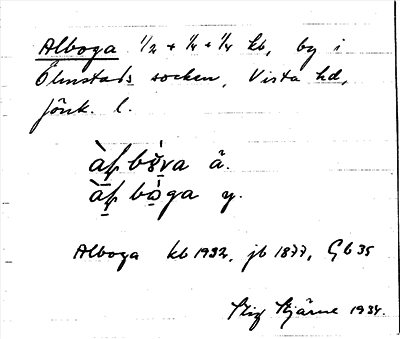 Alboga 1/2 + 1/4 + 1/4 kb, by i
Ölmstads socken, Vista hd,
Jönk. l.
ä.
y.
Alboga kb 1932, jb 1877, Gb 35
Stig Stjärne 1934.